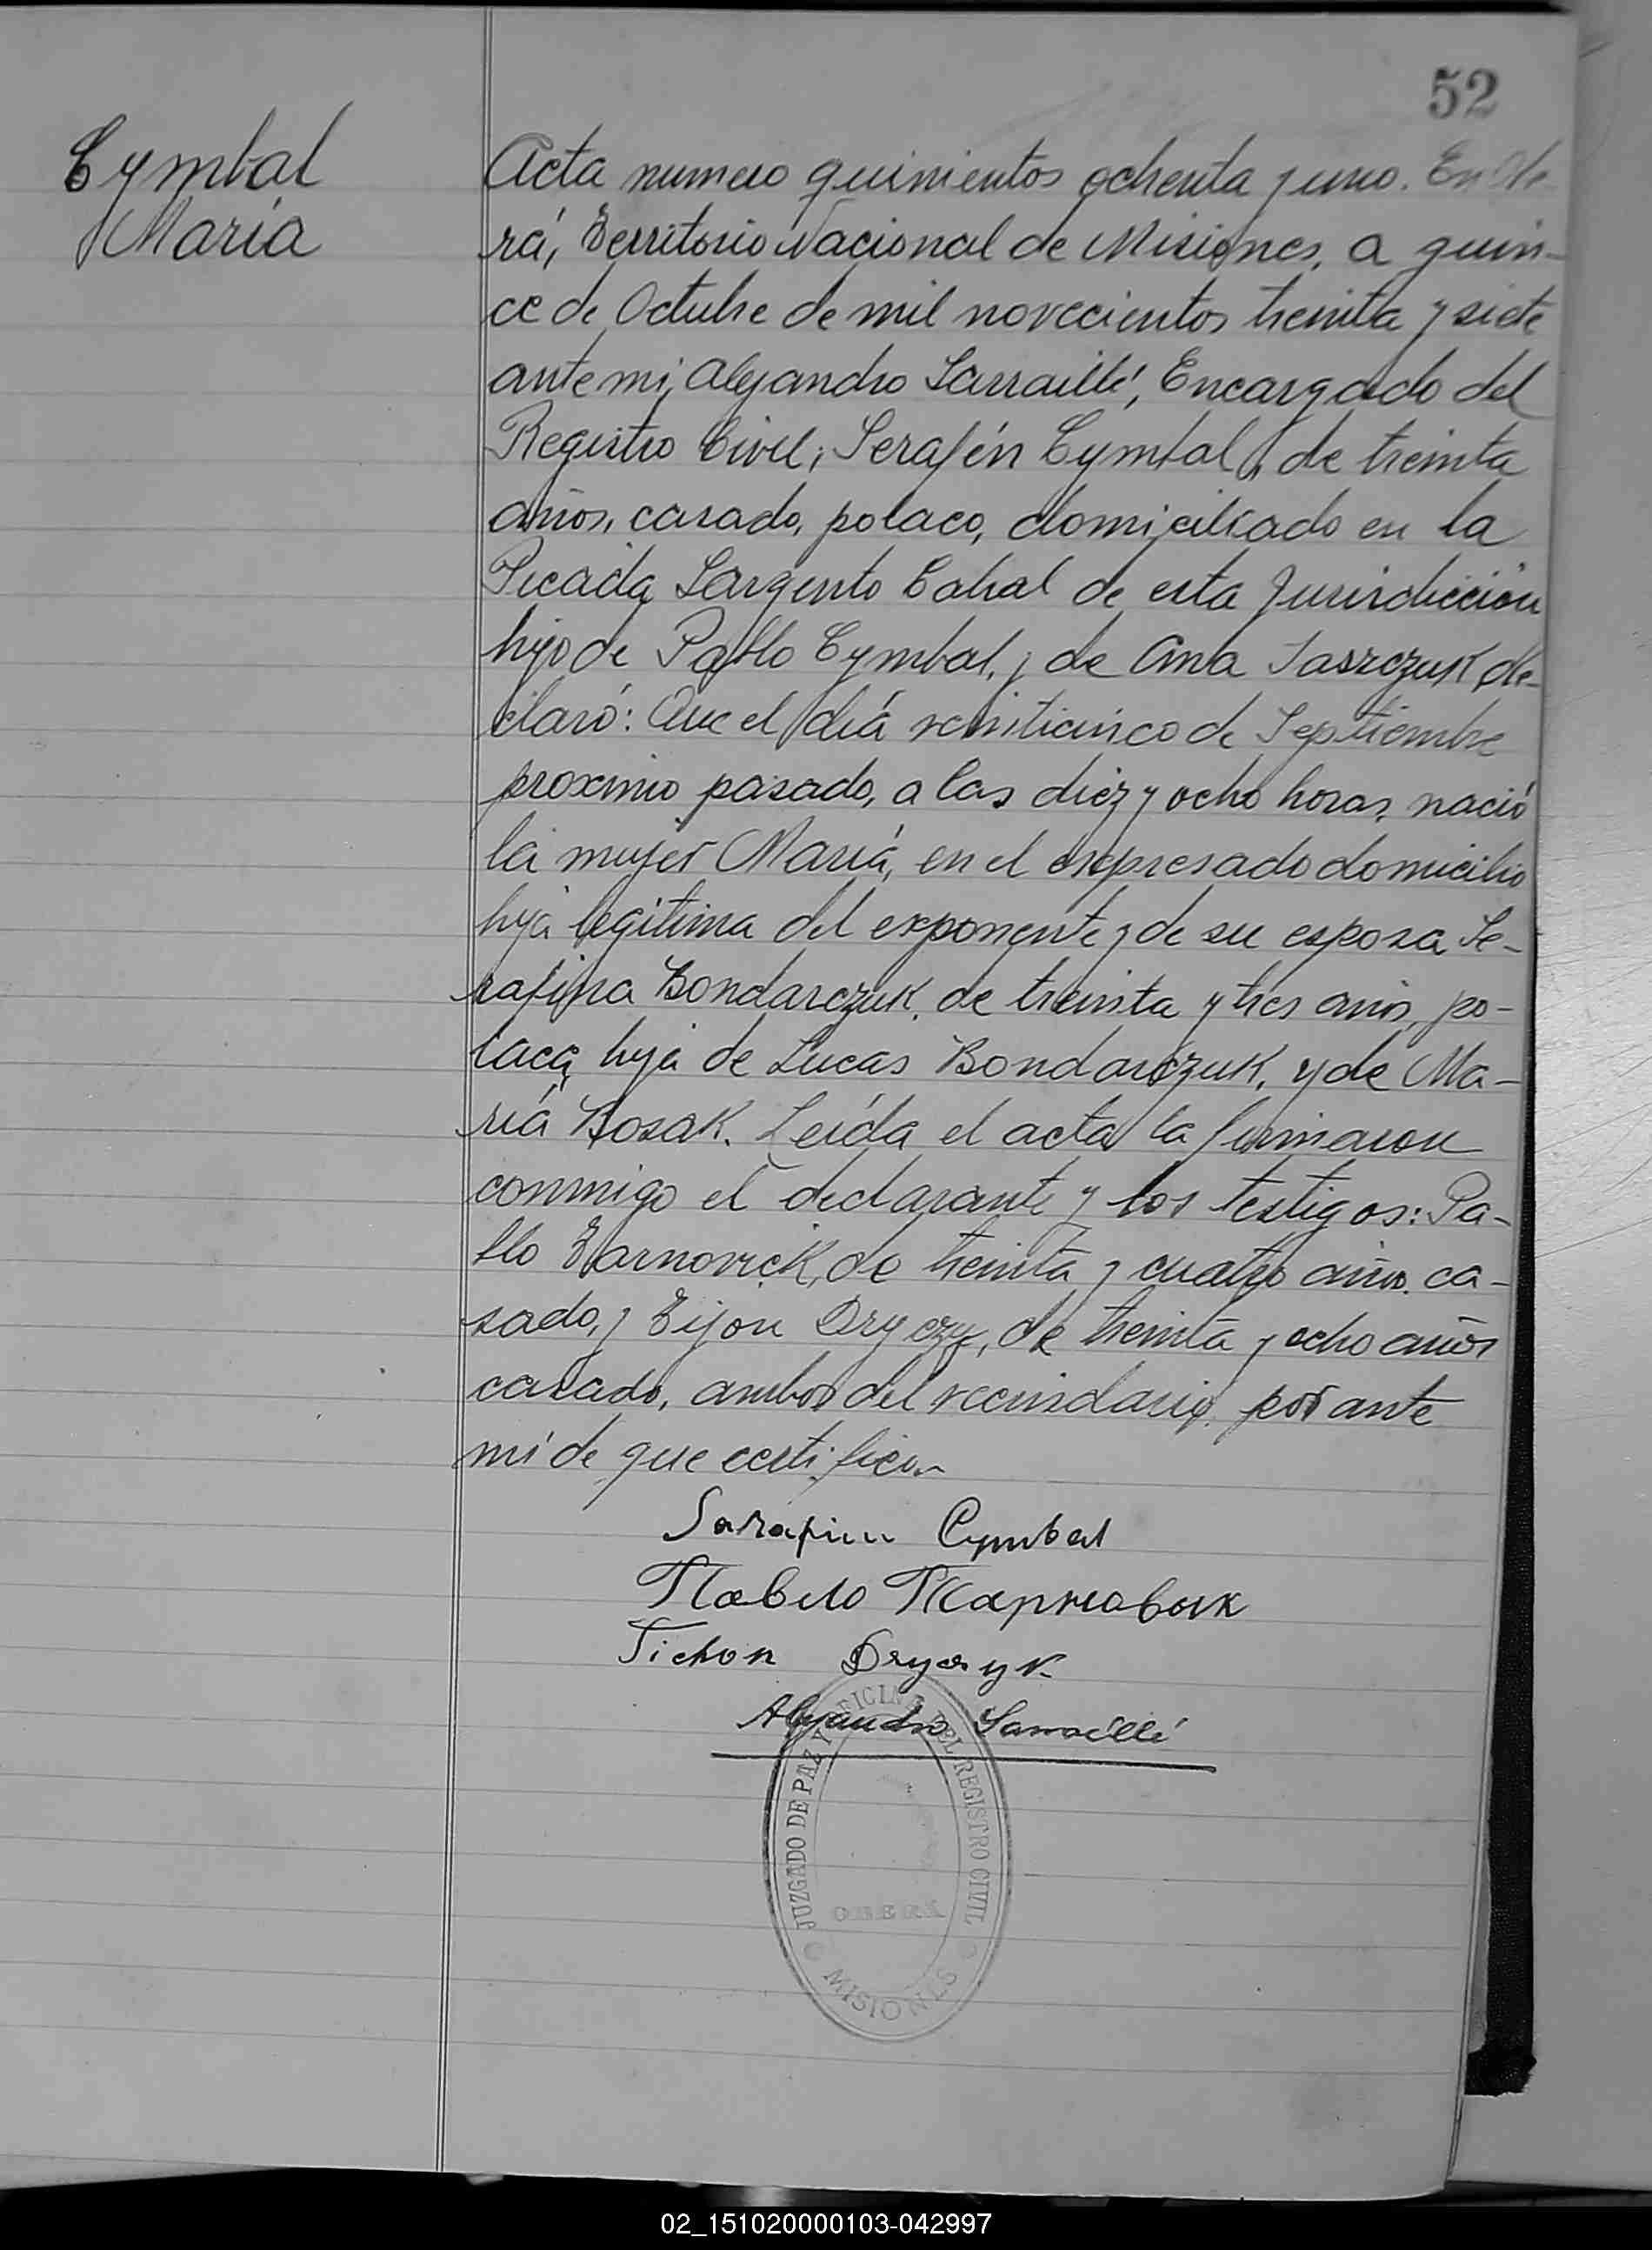 52
Cymbal
María
Acta numero quinientos ochenta y uno. En Obe-
rá, Territorio Nacional de Misiones, a quin-
ce de Octubre de mil novecientos treinta y siete
ante mi, Alejandro Sarraillé, Encargado del
Registro Civil, Serafín Cymbal, de treinta
años, casado, polaco, domiciliado en la
Picada Sargento Cabral de esta Jurisdicción
hijo de Pablo Cymbal, y de Ana Jaszczuk de-
claró: Que el día veinticinco de Septiembre
proximo pasado, a las diez y ocho horas, nació
la mujer María, en el expresado domicilio
hija legítima del exponente y de su esposa Se-
rafina Bondarczuk, de treinta y tres años, po-
laca, hija de Lucas Bondarczuk, y de Ma-
ría Kosak. Leída el acta la firmaron
conmigo el declarante y los testigos: Pa-
blo Tarnovick, de treinta y cuatro años, ca-
sado, y Tijon Dryczy, de treinta y ocho años
casado, ambos del vecindario, por ante
mí de que certifico.
Sarafin Cymbal
Павло Тарновык
Tichon
Alejandro Sarraillé
JUZGADO DE PAZ Y OFICINA DEL REGISTRO CIVIL
OBERA
MISIONES
02_151020000103-042997